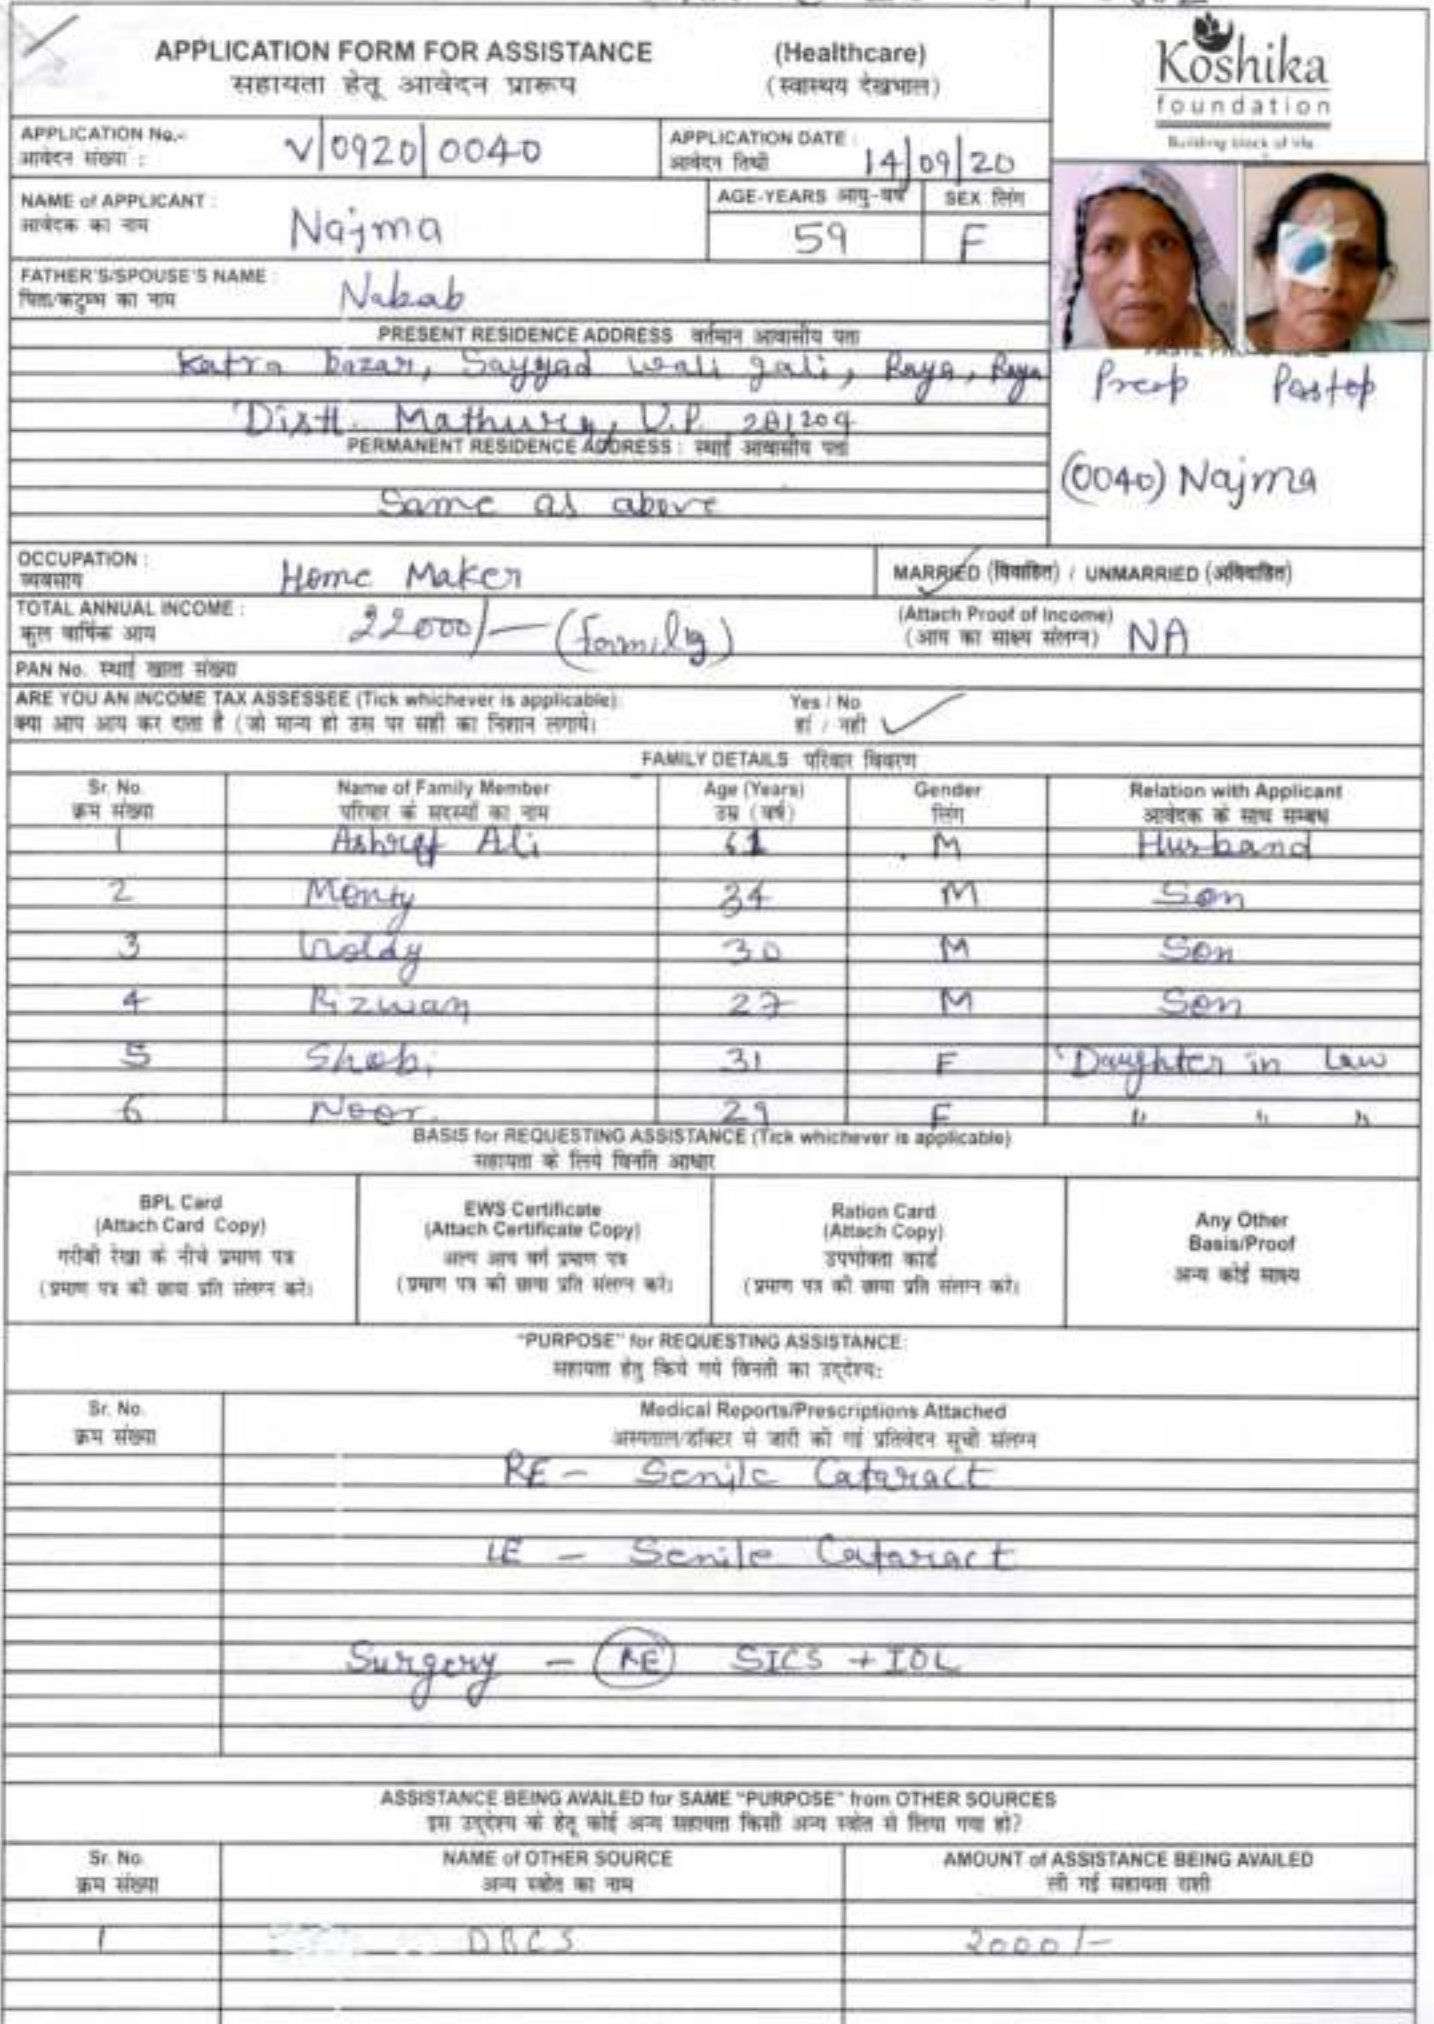 APPLICATION FORM FOR ASSISTANCE (Healthcare)
सहायता हेतू आवेदन प्रारूप (स्वास्थय देखभाल)
Koshika
foundation
Building block of life
APPLICATION No.-
आवेदन संख्या :
V/0920/0040
APPLICATION DATE :
आवेदन तिथी
14/09/20
NAME of APPLICANT :
आवेदक का नाम
Najma
AGE-YEARS आयु-वर्ष
59
SEX लिंग
F
FATHER'S/SPOUSE'S NAME :
पिता/कटुम्ब का नाम
Nabab
PRESENT RESIDENCE ADDRESS वर्तमान आवासीय पता
Katra bazar, Sayyad wali gali, Raya, Raya
Distt. Mathura, U.P. 281204
Preop Postop
(0040) Najma
PERMANENT RESIDENCE ADDRESS : स्थाई आवासीय पता
Same as above
OCCUPATION :
व्यवसाय
Home Maker
MARRIED (विवाहित) / UNMARRIED (अविवाहित)
TOTAL ANNUAL INCOME :
कुल वार्षिक आय
22000/- (family)
(Attach Proof of Income)
(आय का साक्ष्य संलग्न) NA
PAN No. स्थाई खाता संख्या
ARE YOU AN INCOME TAX ASSESSEE (Tick whichever is applicable): Yes / No
क्या आप आय कर दाता है (जो मान्य हो उस पर सही का निशान लगाये। हां / नही ✓
FAMILY DETAILS परिवार विवरण
Sr. No. Name of Family Member Age (Years) Gender Relation with Applicant
क्रम संख्या परिवार के सदस्यों का नाम उम्र (वर्ष) लिंग आवेदक के साथ सम्बध
1 Ashraf Ali 61 M Husband
2 Monty 34 M Son
3 30 M Son
4 Rizwan 27 M Son
5 Shobi 31 F Daughter in law
6 Noor 29 F " " "
BASIS for REQUESTING ASSISTANCE (Tick whichever is applicable)
सहायता के लिये विनति आधार
BPL Card
(Attach Card Copy)
गरीबी रेखा के नीचे प्रमाण पत्र
(प्रमाण पत्र की छाया प्रति संलग्न करे।
EWS Certificate
(Attach Certificate Copy)
अल्प आय वर्ग प्रमाण पत्र
(प्रमाण पत्र की छाया प्रति संलग्न करे।
Ration Card
(Attach Copy)
उपभोक्ता कार्ड
(प्रमाण पत्र की छाया प्रति संलग्न करे।
Any Other
Basis/Proof
अन्य कोई साक्ष्य
"PURPOSE" for REQUESTING ASSISTANCE:
सहायता हेतु किये गये विनती का उद्देश्य:
Sr. No. Medical Reports/Prescriptions Attached
क्रम संख्या अस्पताल/डॉक्टर से जारी की गई प्रतिवेदन सूची संलग्न
RE - Senile Cataract
LE - Senile Cataract
Surgery - RE SICS + IOL
ASSISTANCE BEING AVAILED for SAME "PURPOSE" from OTHER SOURCES
इस उद्देश्य के हेतू कोई अन्य सहायता किसी अन्य स्त्रोत से लिया गया हो?
Sr. No. NAME of OTHER SOURCE AMOUNT of ASSISTANCE BEING AVAILED
क्रम संख्या अन्य स्त्रोत का नाम ली गई सहायता राशी
1 DBCS 2000/-